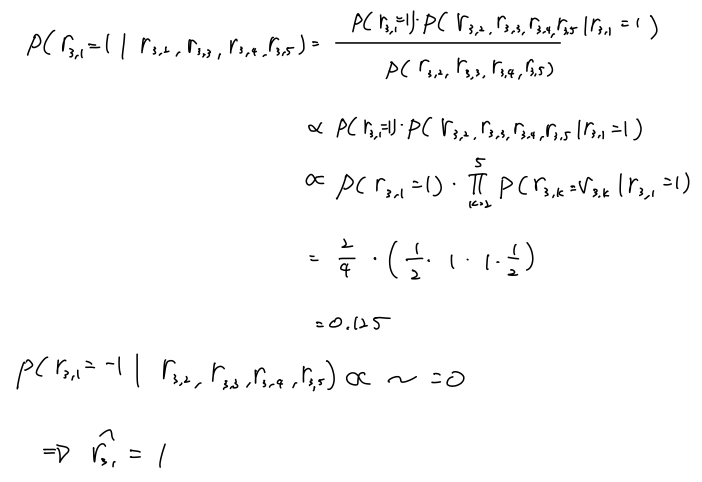 P(r₃,₁=1 | r₃,₂, r₃,₃, r₃,₄, r₃,₅) = P(r₃,₁=1)·P(r₃,₂, r₃,₃, r₃,₄, r₃,₅ | r₃,₁=1) / P(r₃,₂, r₃,₃, r₃,₄, r₃,₅)
∝ P(r₃,₁=1)·P(r₃,₂, r₃,₃, r₃,₄, r₃,₅ | r₃,₁=1)
∝ P(r₃,₁=1) · ∏_{k=2}^{5} P(r₃,k = r₃,k | r₃,₁=1)
= 2/4 · (1/2 · 1 · 1 · 1/2)
= 0.125
P(r₃,₁ = -1 | r₃,₂, r₃,₃, r₃,₄, r₃,₅) ∝ ~ = 0
⇒ r̂₃,₁ = 1